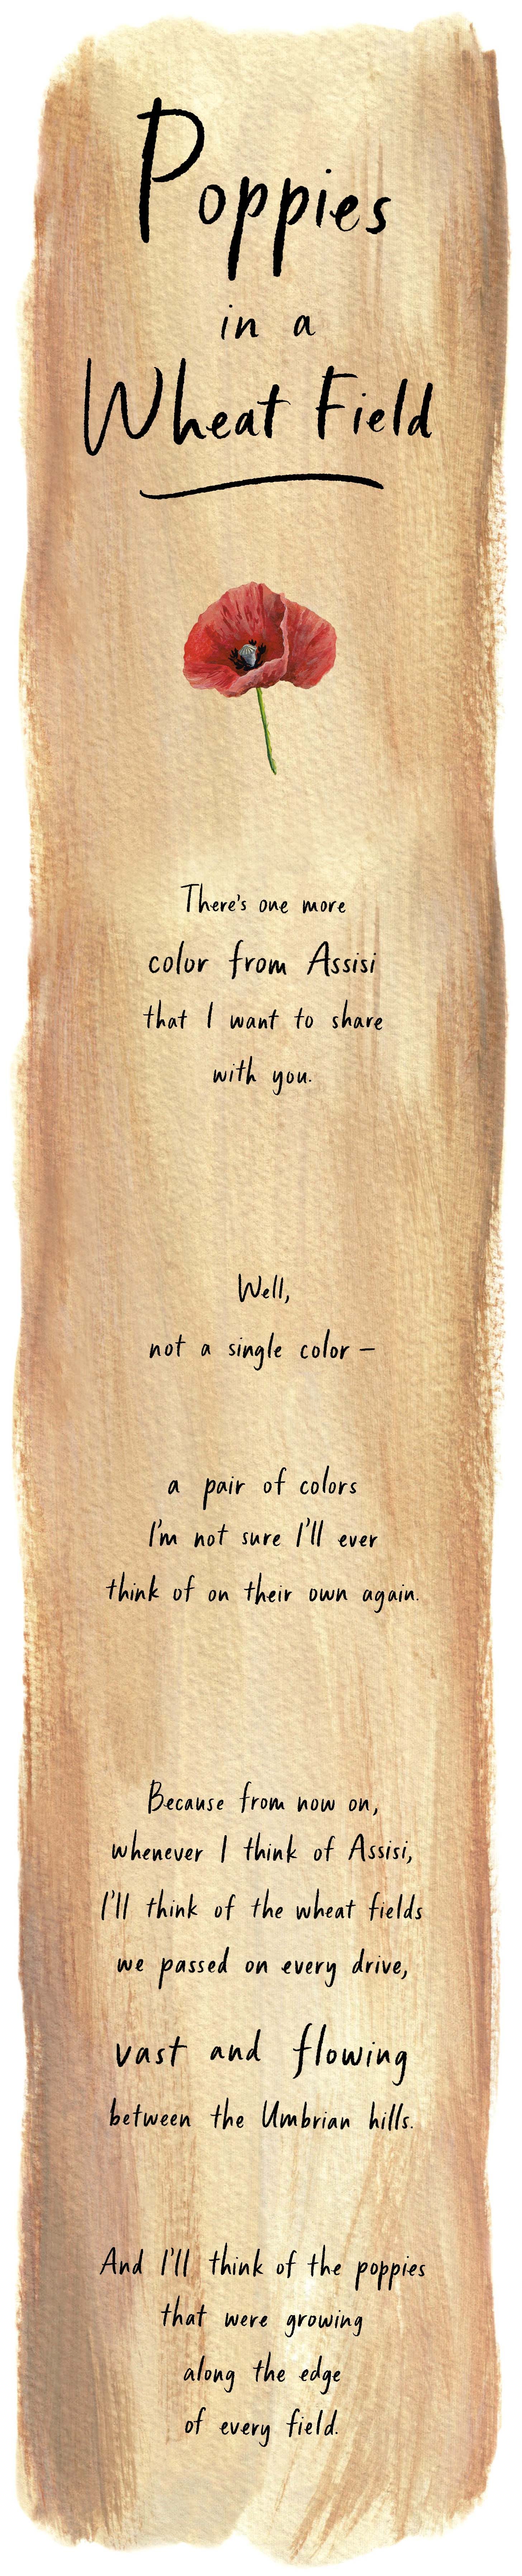 Poppies
in a
Wheat Field
There's one more
color from Assisi
that I want to share
with you.
Well,
not a single color –
a pair of colors
I'm not sure I'll ever
think of on their own again.
Because from now on,
whenever I think of Assisi,
I'll think of the wheat fields
we passed on every drive,
vast and flowing
between the Umbrian hills.
And I'll think of the poppies
that were growing
along the edge
of every field.